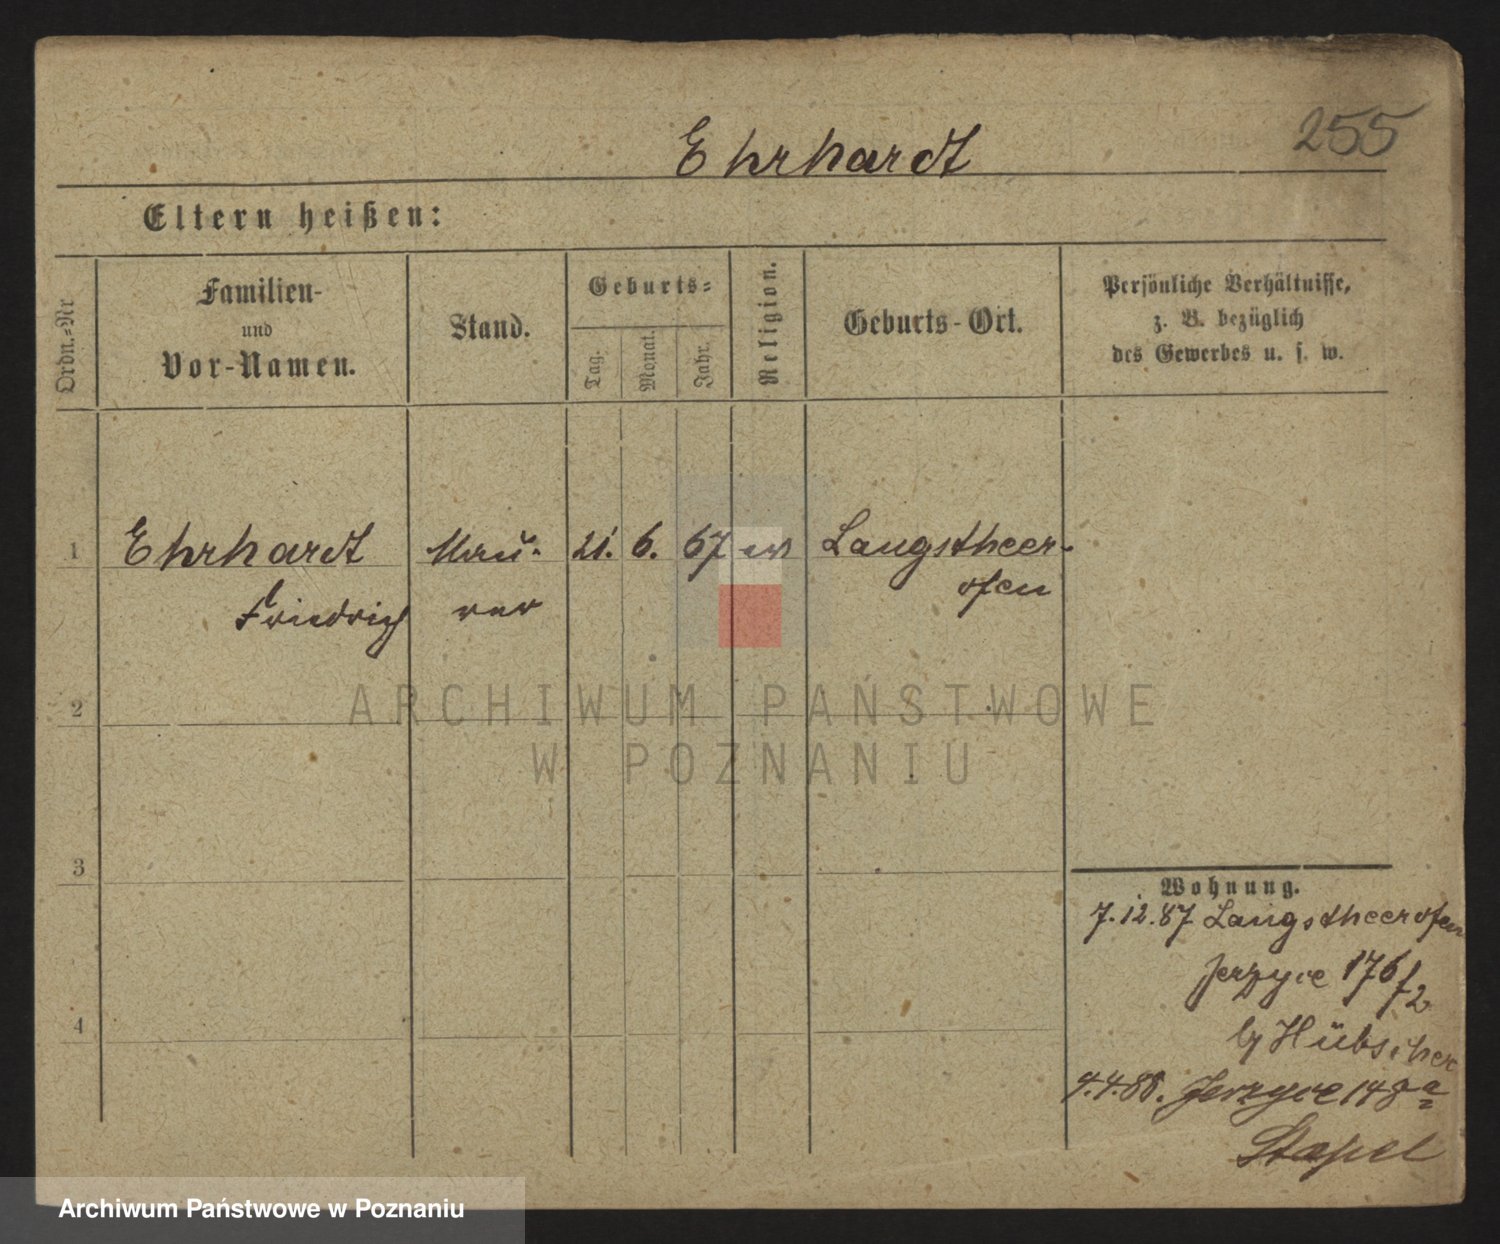 255
Ehrhardt
Eltern heißen:
Ordn.=Nr
Familien-
und
Vor-Namen.
Stand.
Geburts=
Tag.
Monat.
Jahr.
Religion.
Geburts-Ort.
Persönliche Verhältnisse,
z. B. bezüglich
des Gewerbes u. s. w.
1 Ehrhardt Mau- 21. 6. 67 ev Langstheer-
Friedrich rer ofen
ARCHIWUM PAŃSTWOWE
W POZNANIU
2
3
4
Wohnung.
7.12.87 Langstheerofen
Jerzyce 176/2
by Hübscher
9.4.88. Jerzyce 148a
Stapel
Archiwum Państwowe w Poznaniu